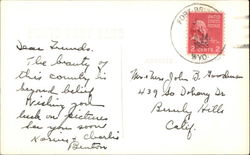 Dear Friends.
The beauty of
this country is
beyond belief
Wishing you
luck on pictures
See you soon
Karin & Charlie
Benton
FORT BRIDGER
WYO.
2 CENTS 2
Mr & Mrs. John B. Goodman
439 So Doheny Dr.
Beverly Hills
Calif.